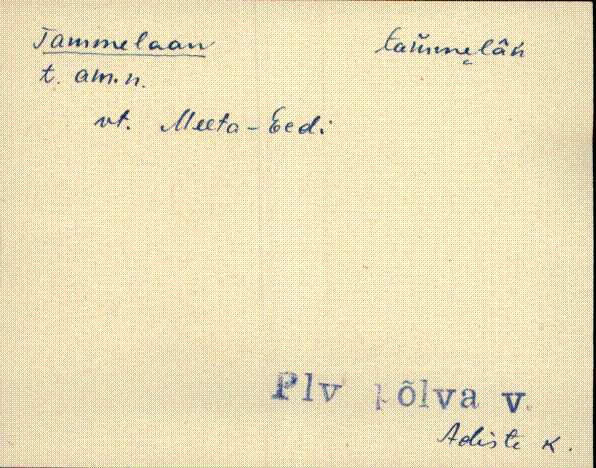 Tammelaan tam̆melân
t. am.n.
vt. Meeta-Eedi
Plv Põlva v.
Adiste K.